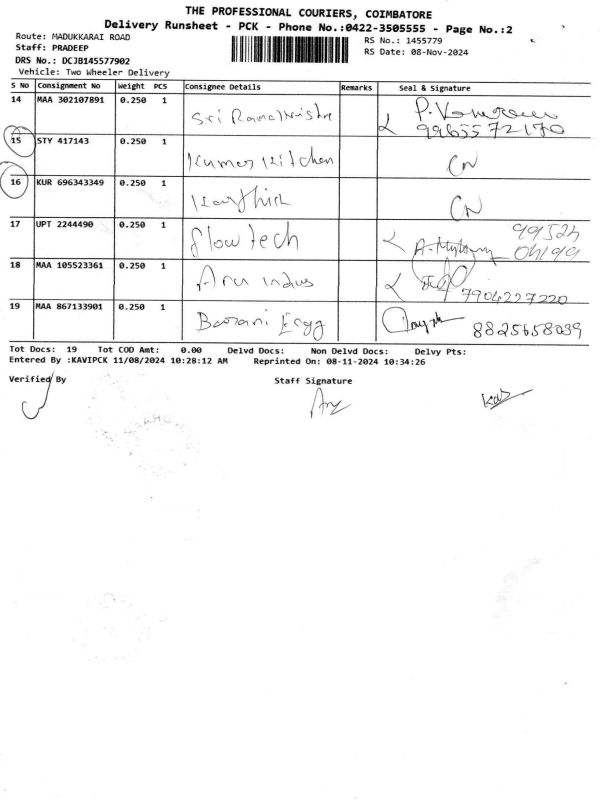 THE PROFESSIONAL COURIERS, COIMBATORE
Delivery Runsheet - PCK - Phone No.:0422-3505555 - Page No.:2
Route: MADUKKARAI ROAD
RS No.: 1455779
Staff: PRADEEP
RS Date: 08-Nov-2024
DRS No.: DCJB145577902
Vehicle: Two Wheeler Delivery
S No Consignment No Weight PCS Consignee Details Remarks Seal & Signature
14 MAA 302107891 0.250 1 Sri
9965572170
15 STY 417143 0.250 1 Kumar Kitchen CN
16 KUR 696343349 0.250 1 Karthick CN
17 UPT 2244490 0.250 1 flowtech 99524
04199
18 MAA 105523361 0.250 1 Aru Indus
7904227220
19 MAA 867133901 0.250 1 8825658039
Tot Docs: 19 Tot COD Amt: 0.00 Delvd Docs: Non Delvd Docs: Delvy Pts:
Entered By :KAVIPCK 11/08/2024 10:28:12 AM Reprinted On: 08-11-2024 10:34:26
Verified By Staff Signature